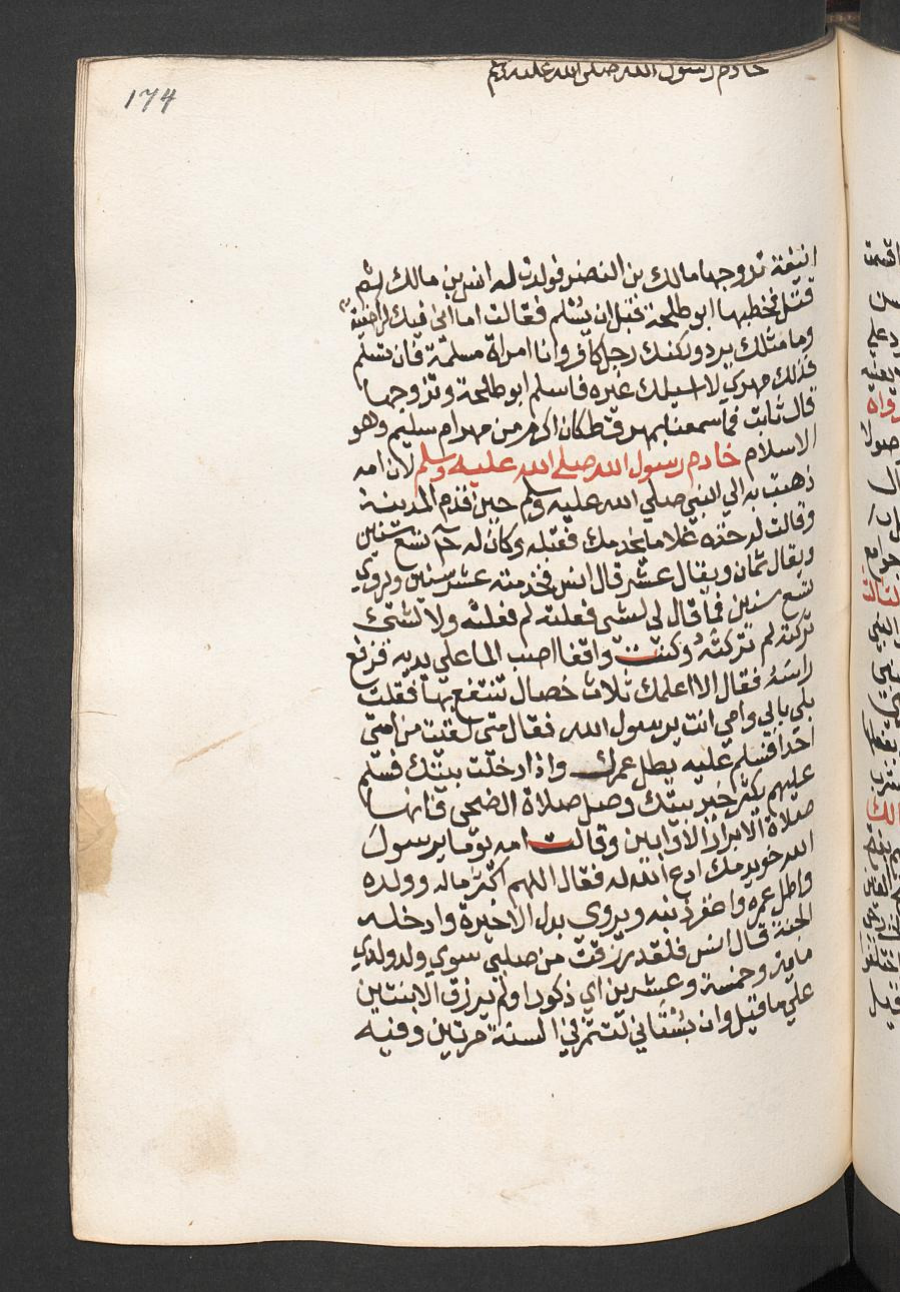 خادم رسول الله صلى الله عليه وسلم
174
انيفة تزوجها مالك بن النضر فولدت له انس بن مالك ثم
قتل فخطبها ابو طلحة قبل ان يسلم فقالت اما اني فيك لراغبة
وما مثلك يرد ولكنك رجل كافر وانا امراة مسلمة فان تسلم
فذلك مهري لا اسيلك غيره فاسلم ابو طلحة وتزوجها
قال ثابت فما سمعنا بمهر قط كان اكرم من مهر ام سليم وهو
الاسلام خادم رسول الله صلي الله عليه وسلم لان امه
ذهبت به الي النبي صلي الله عليه وسلم حين قدم المدينة
وقالت له خذه غلاما يخدمك فقبله وكان له ح تسع سنين
ويقال ثمان ويقال عشر قال انس فخدمته عشر سنين وروي
تسع سنين فما قال لي لشي فعلته لم فعلته ولا لشئ
تركته لم تركته وكنت واقفا اصب الما علي يديه فرفع
راسه فقال الا اعلمك ثلاث خصال تنتفع بها فقلت
بلي بابي وامي انت يرسول الله فقال متى لقيت من امتي
احدا فسلم عليه يطل عمرك واذا دخلت بيتك فسلم
عليهم يكثر خير بيتك وصل صلاة الضحى فانها
صلاة الابرار الاوابين وقالت امه يوما يرسول
الله خويدمك ادع الله له فقال اللهم اكثر ماله وولده
واطل عمره واغفر ذنبه ويروي بدل الاخيرة وادخله
الجنة قال انس فلقد رزقت من صلبي سوي ولد ولدي
ماية وخمسة وعشرين اي ذكورا ولم يرزق الا بنتين
علي ما قيل وان بستاني لتثمر في السنة مرتين وفيه